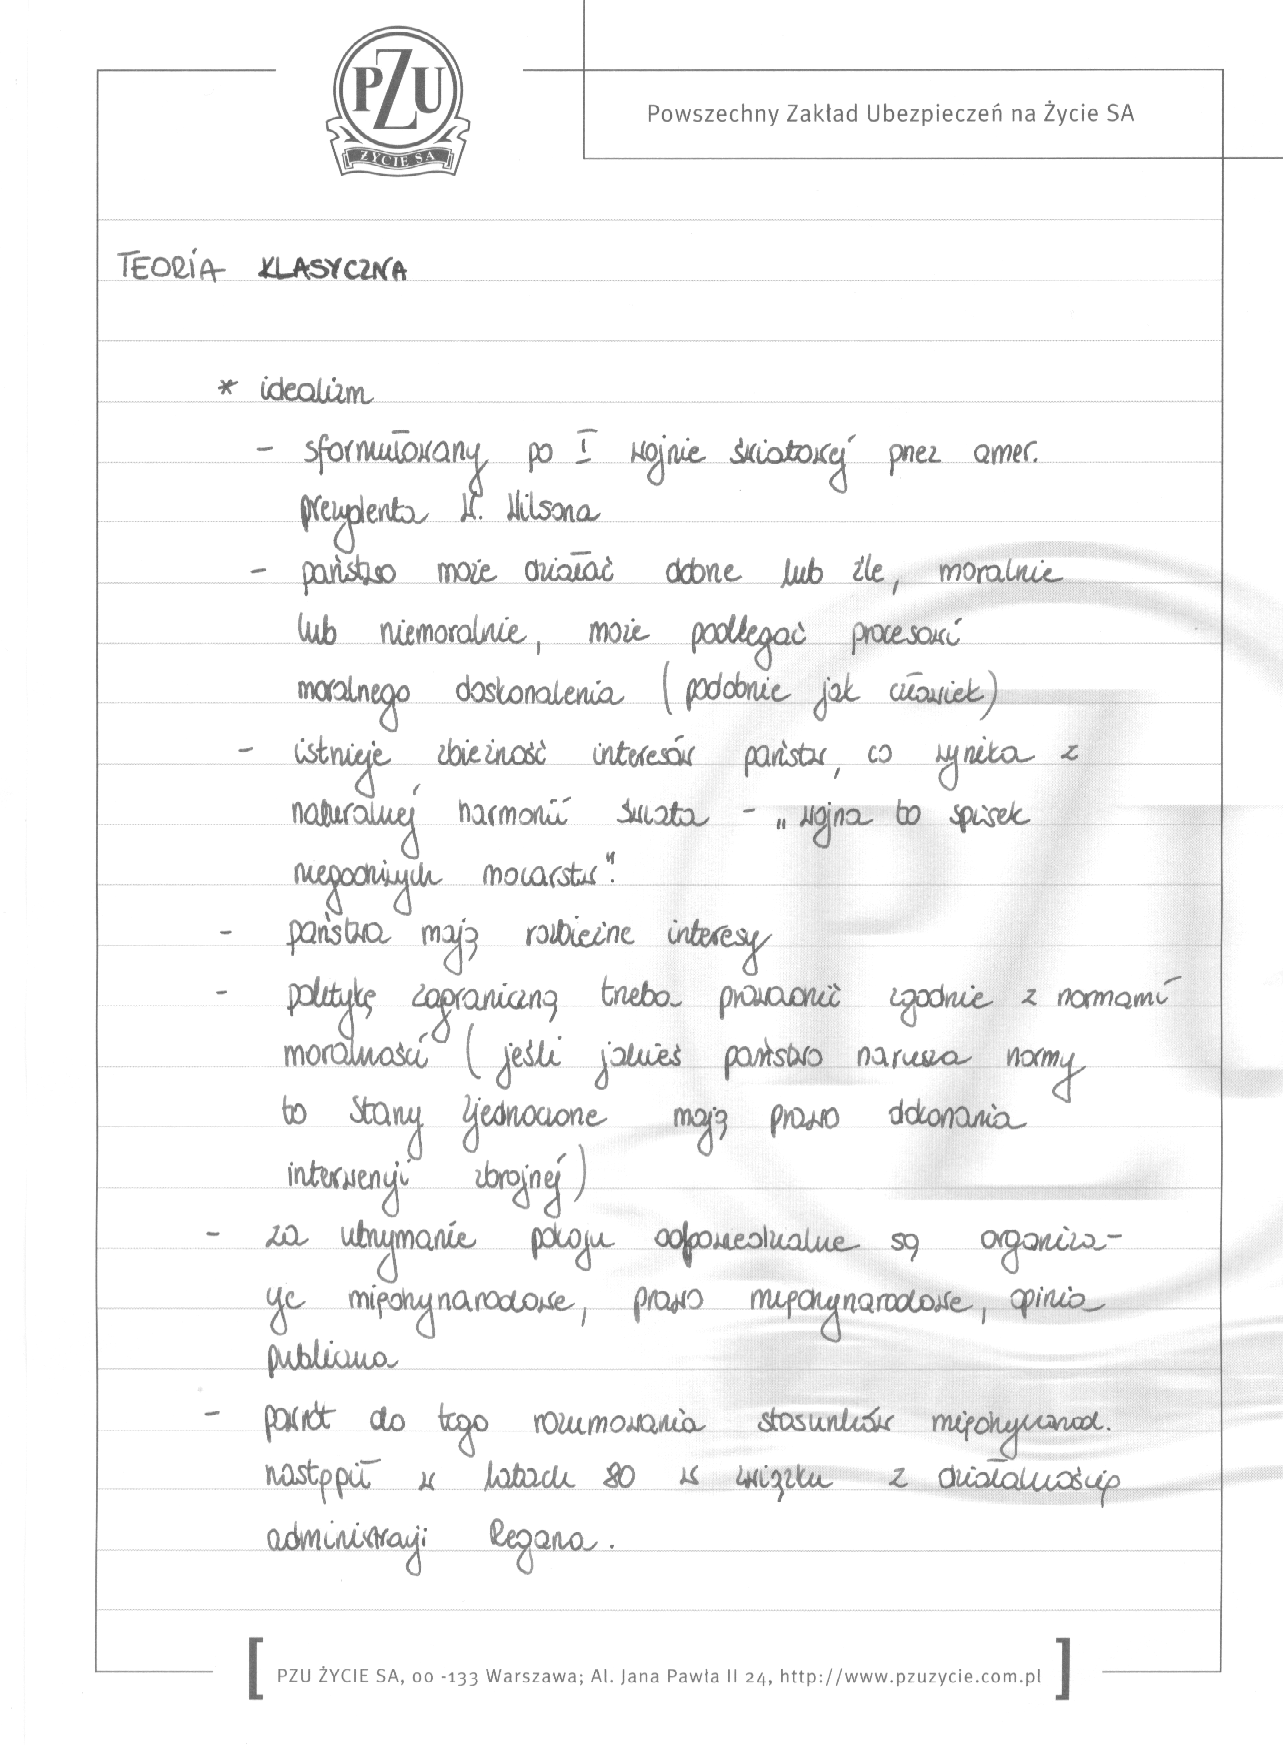 PZU
ŻYCIE SA
Powszechny Zakład Ubezpieczeń na Życie SA
TEORIA KLASYCZNA
* idealizm
- sformułowany po I wojnie światowej przez amer.
prezydenta W. Wilsona
- państwo może działać dobrze lub źle, moralnie
lub niemoralnie, może podlegać procesowi
moralnego doskonalenia (podobnie jak człowiek)
- istnieje zbieżność interesów państw, co wynika z
naturalnej harmonii świata - „wojna to spisek
niegodziwych mocarstw".
- państwa mają rozbieżne interesy
- politykę zagraniczną trzeba prowadzić zgodnie z normami
moralności (jeśli jakieś państwo narusza normy
to Stany Zjednoczone mają prawo dokonania
interwencji zbrojnej)
- za utrzymanie pokoju odpowiedzialne są organiza-
cje międzynarodowe, prawo międzynarodowe, opinia
publiczna
- powrót do tego rozumowania stosunków międzynarod.
nastąpił w latach 80 w związku z działalnością
administracji Regana.
[ PZU ŻYCIE SA, 00 -133 Warszawa; Al. Jana Pawła II 24, http://www.pzuzycie.com.pl ]